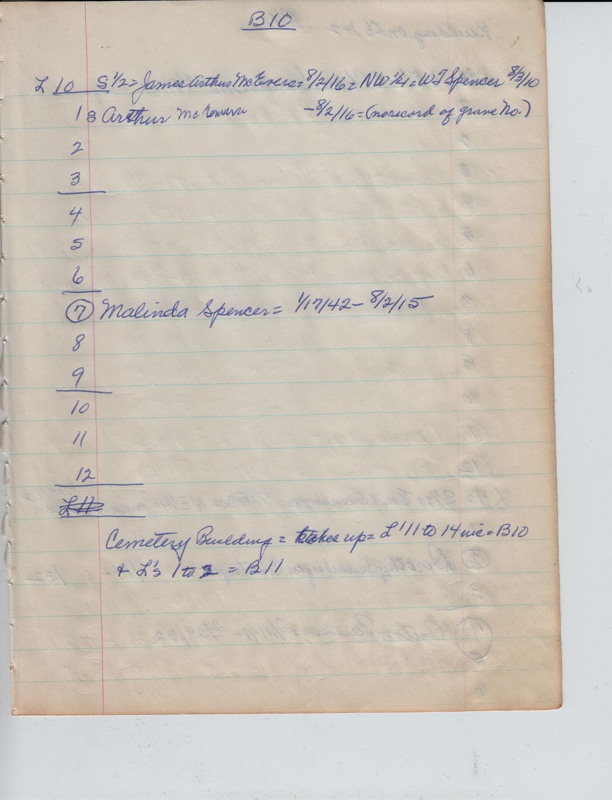 B10
L 10 S 1/2 = James Arthur McEvers = 8/2/16 = NW 1/4 = WT Spencer 8/3/10
1 8 Arthur - 8/2/16 = (no record of grave No.)
2
3
4
5
6
7 Malinda Spencer = 1/17/42 - 8/2/15
8
9
10
11
12
L 11
Cemetery Building = takes up = L's 11 to 14 inc = B10
& L's 1 to 2 = B11